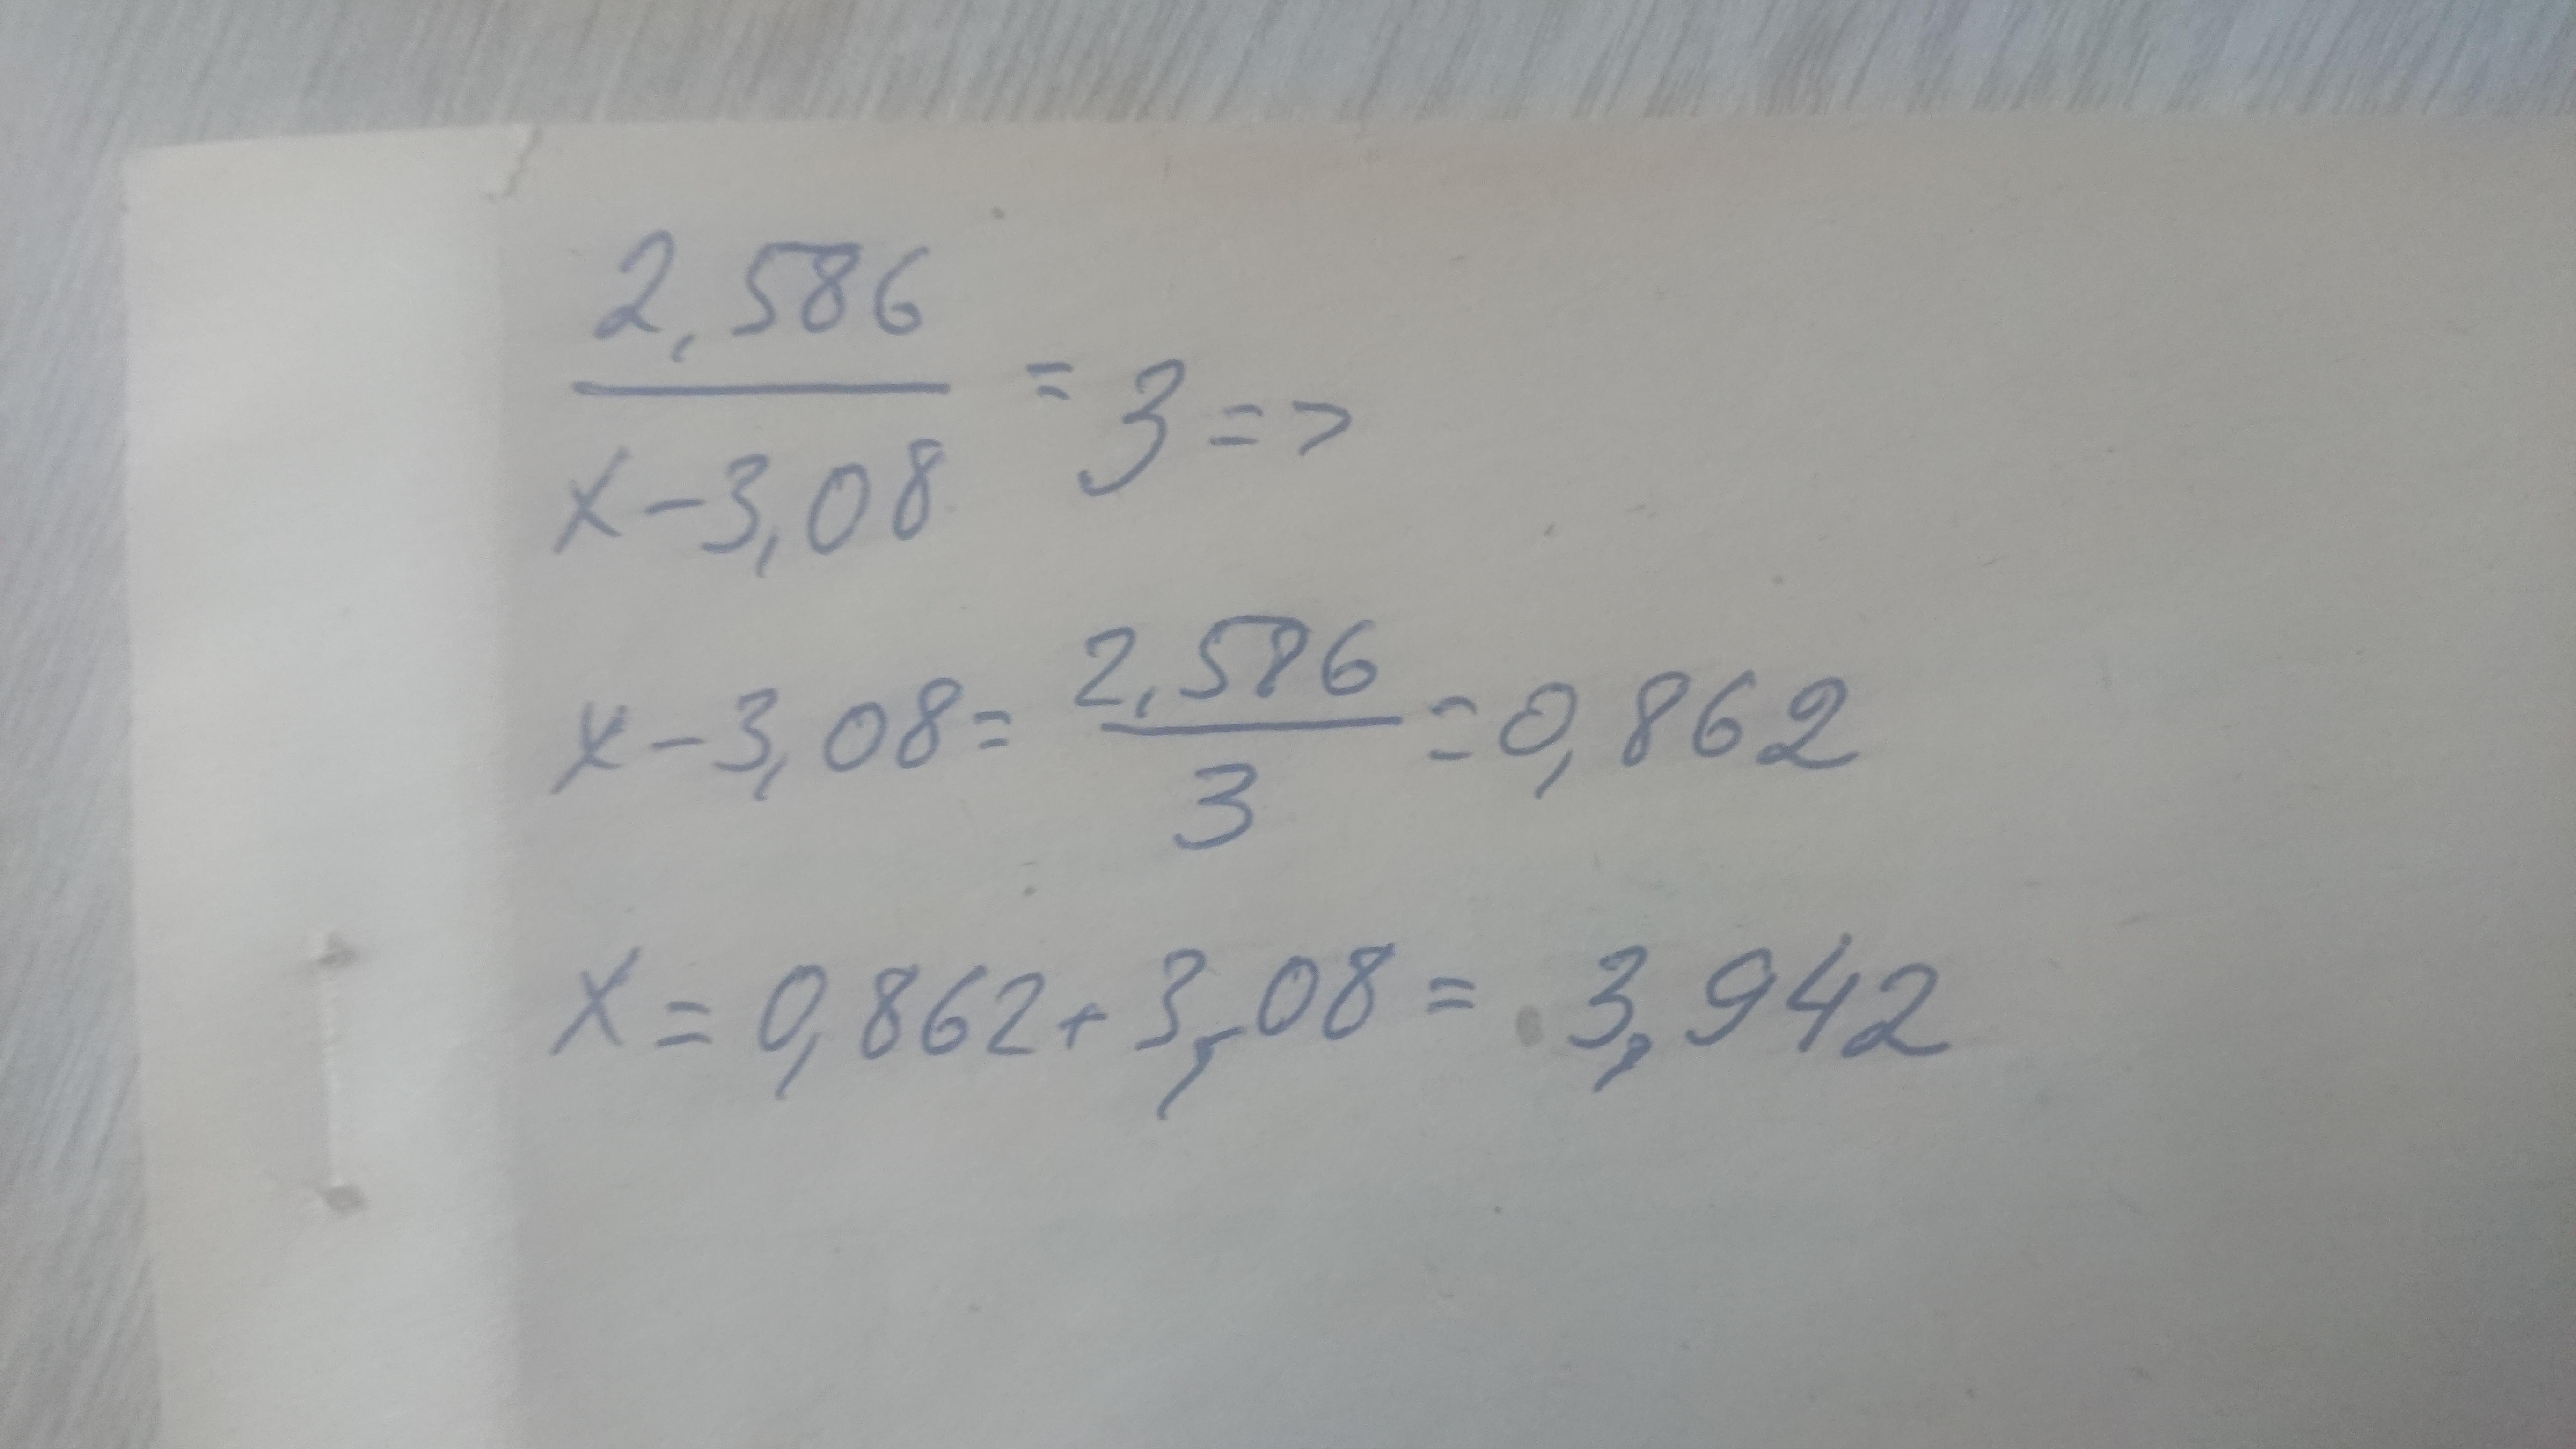 2,586 / x-3,08 = 3 =>
x-3,08 = 2,586 / 3 = 0,862
x = 0,862 + 3,08 = 3,942